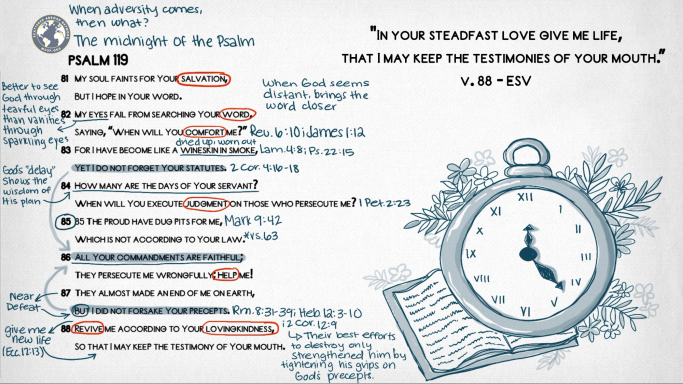 When adversity comes,
then what?
The midnight of the Psalm
PSALM 119
81 MY SOUL FAINTS FOR YOUR SALVATION,
BUT I HOPE IN YOUR WORD.
82 MY EYES FAIL FROM SEARCHING YOUR WORD,
SAYING, "WHEN WILL YOU COMFORT ME?" Rev. 6:10; James 1:12
dried up, worn out
83 FOR I HAVE BECOME LIKE A WINESKIN IN SMOKE, Lam. 4:8; Ps. 22:15
YET I DO NOT FORGET YOUR STATUTES. 2 Cor. 4:16-18
84 HOW MANY ARE THE DAYS OF YOUR SERVANT?
WHEN WILL YOU EXECUTE JUDGMENT ON THOSE WHO PERSECUTE ME? 1 Pet. 2:23
85 85 THE PROUD HAVE DUG PITS FOR ME, Mark 9:42
WHICH IS NOT ACCORDING TO YOUR LAW. *vs. 63
86 ALL YOUR COMMANDMENTS ARE FAITHFUL;
THEY PERSECUTE ME WRONGFULLY; HELP ME!
87 THEY ALMOST MADE AN END OF ME ON EARTH,
BUT I DID NOT FORSAKE YOUR PRECEPTS. Rm. 8:31-39; Heb. 12:3-10
; 2 Cor. 12:9
88 REVIVE ME ACCORDING TO YOUR LOVINGKINDNESS,
SO THAT I MAY KEEP THE TESTIMONY OF YOUR MOUTH.
Better to see
God through
tearful eyes
than vanities
through
sparkling eyes
God's "delay"
Shows the
wisdom of
His plan
Near
Defeat
give me
new life
(Ecc. 12:13)
When God seems
distant, brings the
word closer
Their best efforts
to destroy only
strengthened him by
tightening his grips on
God's precepts.
"IN YOUR STEADFAST LOVE GIVE ME LIFE,
THAT I MAY KEEP THE TESTIMONIES OF YOUR MOUTH."
V. 88 - ESV
XII
I
II
III
IV
V
VI
VII
VIII
IX
X
XI